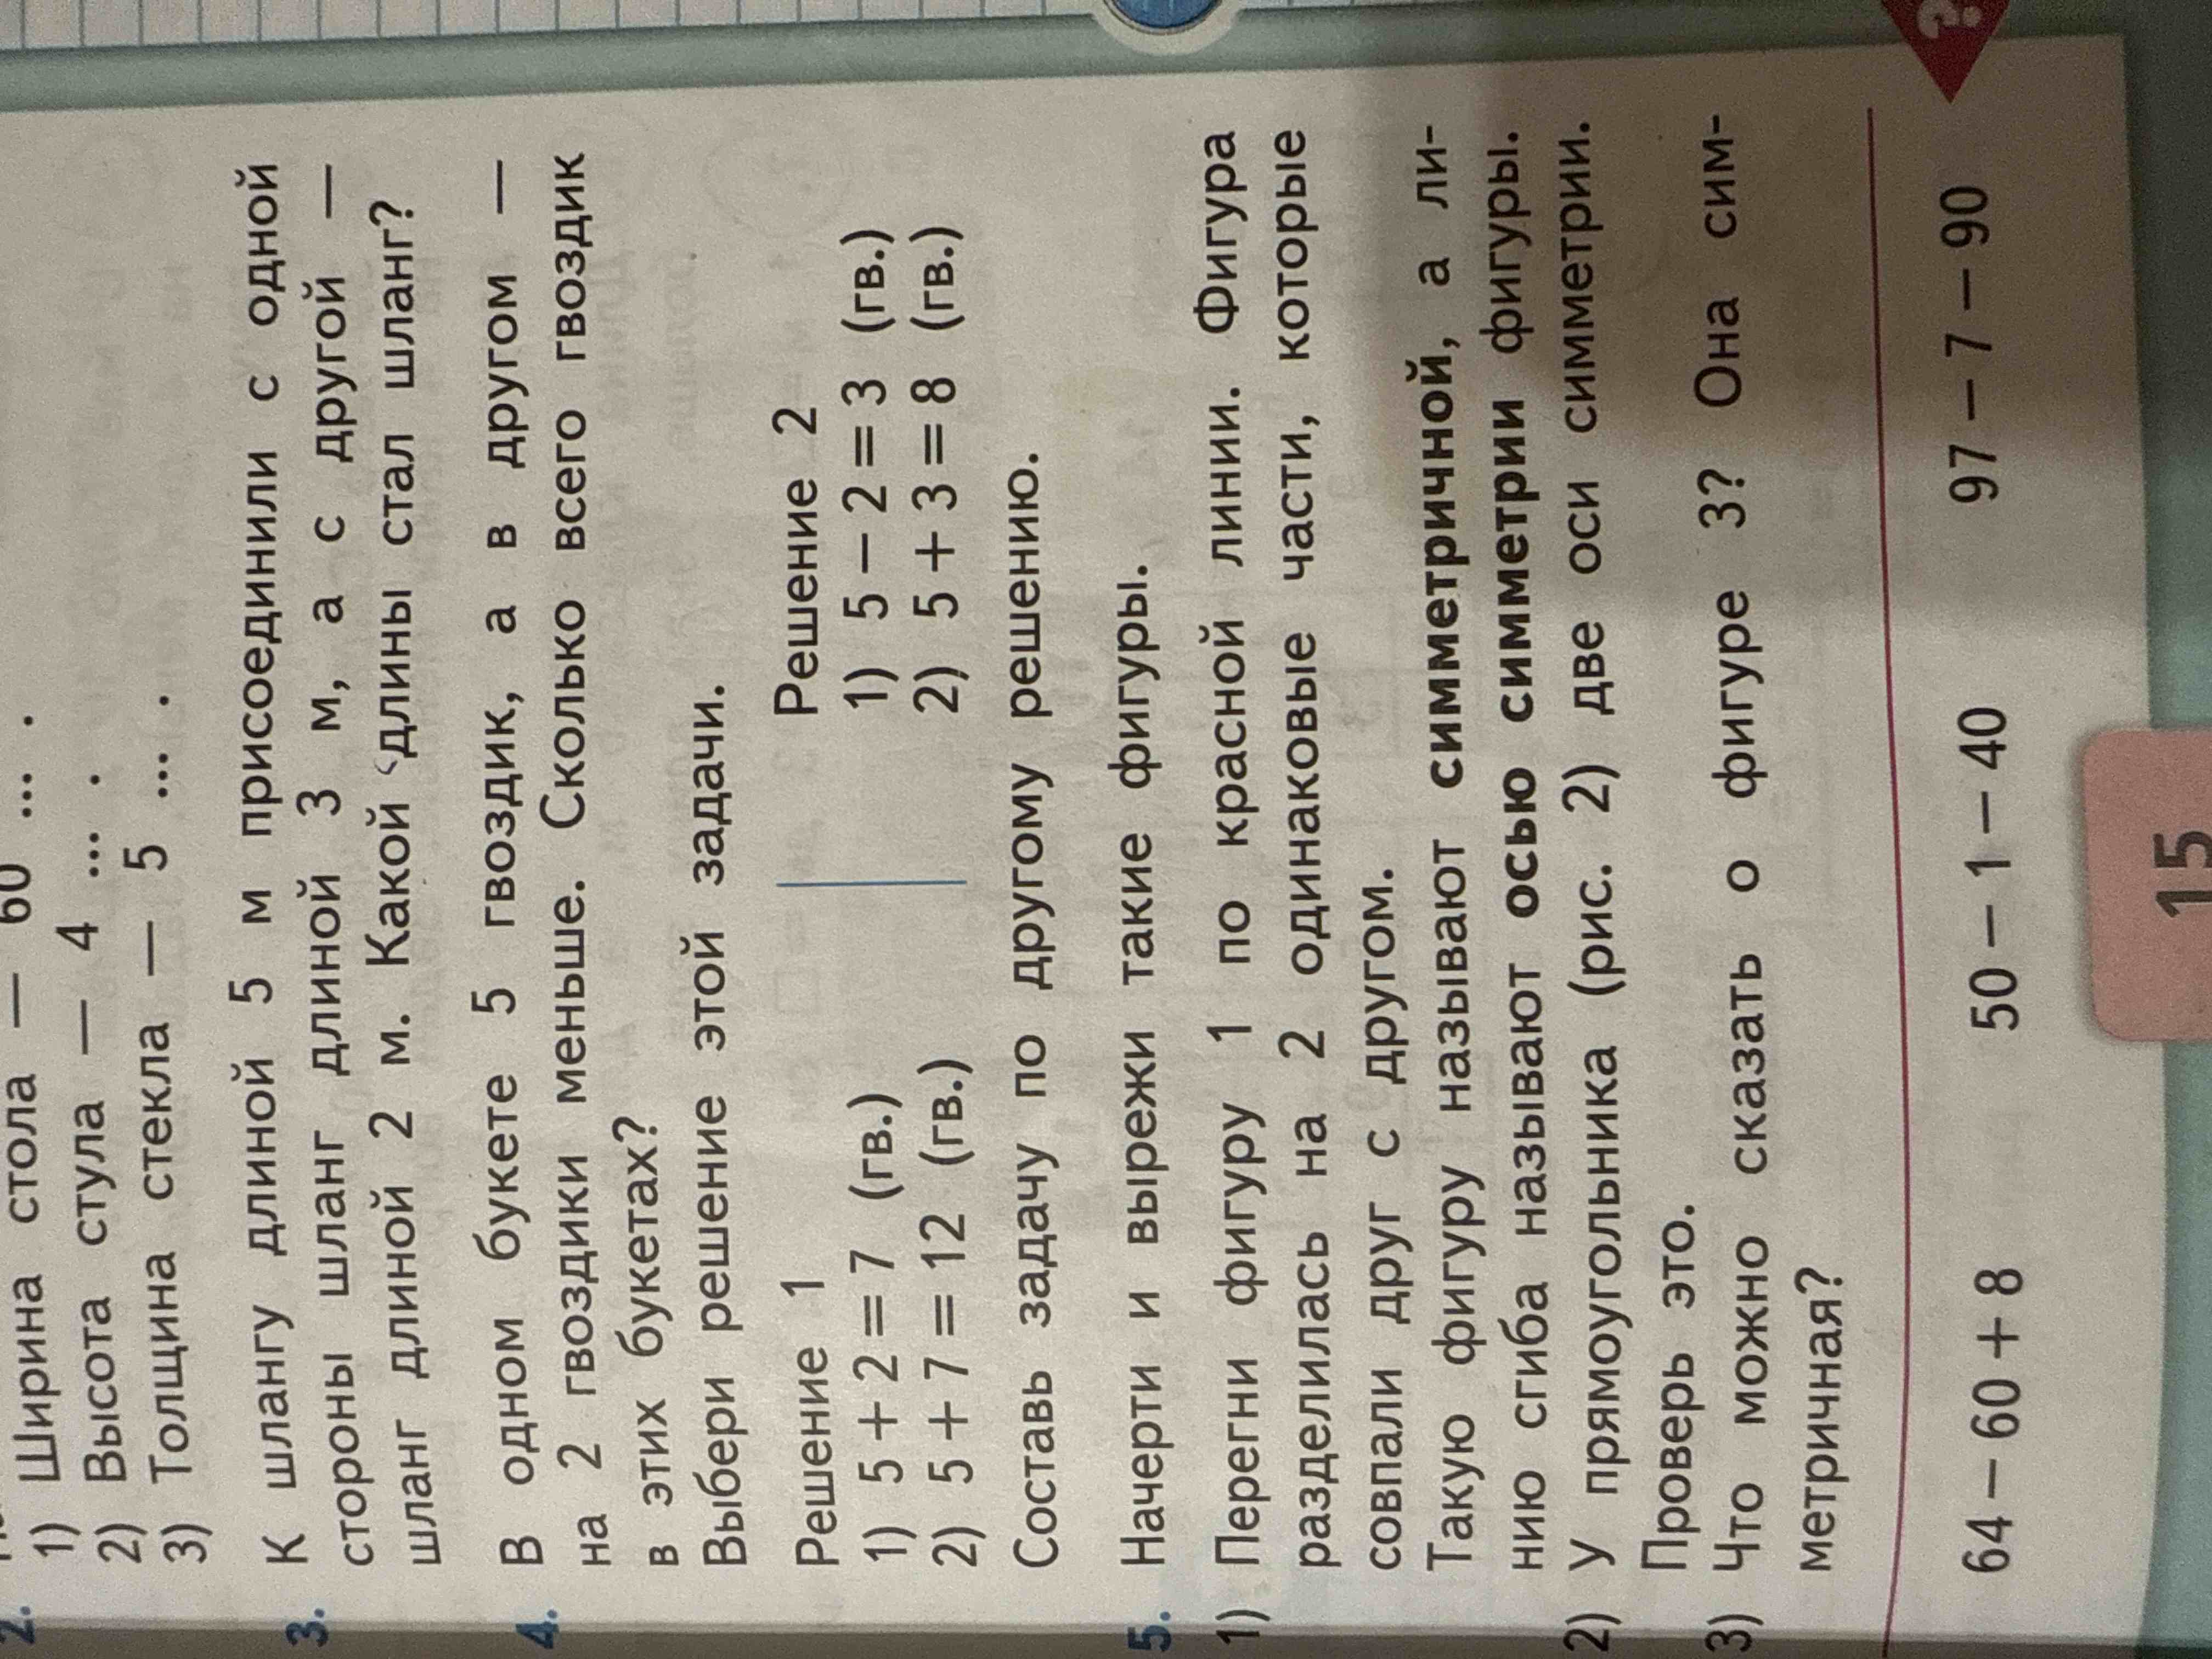 2.
1) Ширина стола — 60 ... .
2) Высота стула — 4 ... .
3) Толщина стекла — 5 ... .
3. К шлангу длиной 5 м присоединили с одной
стороны шланг длиной 3 м, а с другой —
шланг длиной 2 м. Какой длины стал шланг?
4. В одном букете 5 гвоздик, а в другом —
на 2 гвоздики меньше. Сколько всего гвоздик
в этих букетах?
Выбери решение этой задачи.
Решение 1
1) 5 + 2 = 7 (гв.)
2) 5 + 7 = 12 (гв.)
Решение 2
1) 5 − 2 = 3 (гв.)
2) 5 + 3 = 8 (гв.)
Составь задачу по другому решению.
5. Начерти и вырежи такие фигуры.
1) Перегни фигуру 1 по красной линии. Фигура
разделилась на 2 одинаковые части, которые
совпали друг с другом.
Такую фигуру называют симметричной, а ли-
нию сгиба называют осью симметрии фигуры.
2) У прямоугольника (рис. 2) две оси симметрии.
Проверь это.
3) Что можно сказать о фигуре 3? Она сим-
метричная?
64 − 60 + 8 50 − 1 − 40 97 − 7 − 90
?
15